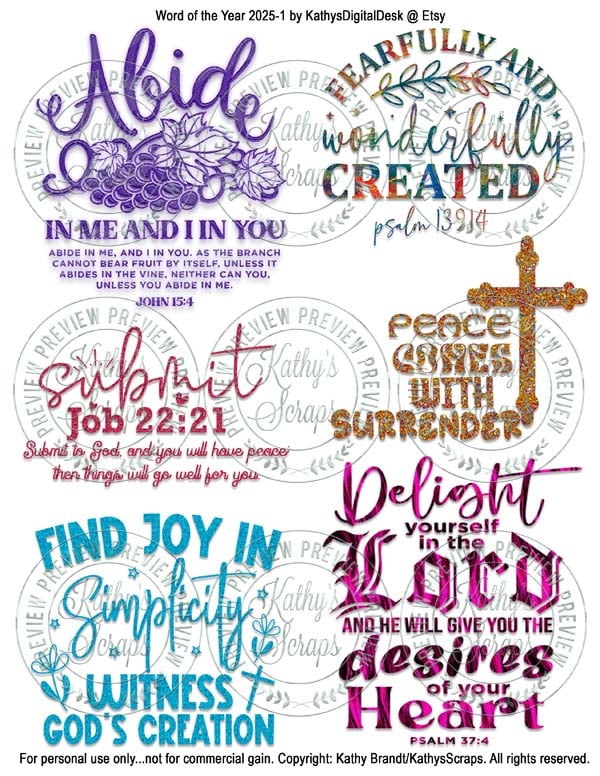 Word of the Year 2025-1 by KathysDigitalDesk @ Etsy
Abide
IN ME AND I IN YOU
ABIDE IN ME, AND I IN YOU. AS THE BRANCH
CANNOT BEAR FRUIT BY ITSELF, UNLESS IT
ABIDES IN THE VINE, NEITHER CAN YOU,
UNLESS YOU ABIDE IN ME.
JOHN 15:4
FEARFULLY AND
wonderfully
CREATED
psalm 139:14
PEACE
COMES
WITH
SURRENDER
submit
Job 22:21
Submit to God, and you will have peace;
then things will go well for you.
FIND JOY IN
Simplicity
WITNESS
GOD'S CREATION
Delight
yourself
in the
Lord
AND HE WILL GIVE YOU THE
desires
of your
Heart
PSALM 37:4
PREVIEW PREVIEW PREVIEW
Kathy's
Scraps
For personal use only...not for commercial gain. Copyright: Kathy Brandt/KathysScraps. All rights reserved.